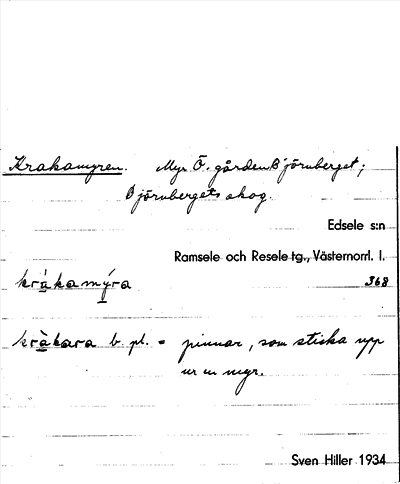 Krakamyren. Myr Ö. gården Björnberget;
Björnbergets skog.
Edsele s:n
Ramsele och Resele tg., Västernorrl. l.
kràkamýra 368
kràkara b. pl. = pinnar, som sticka upp
ur en myr.
Sven Hiller 1934